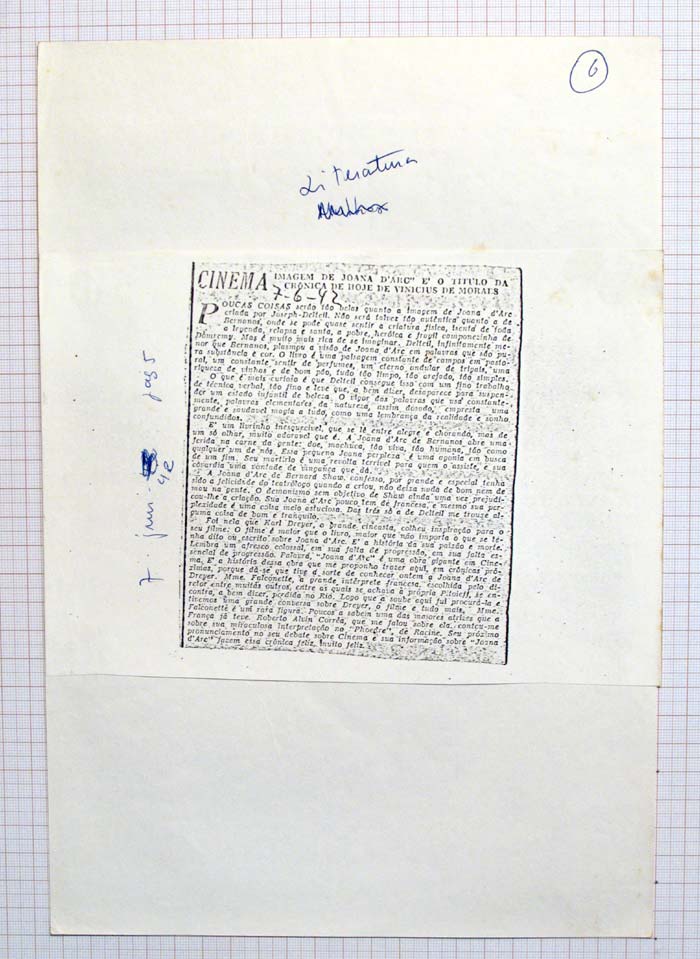 6
Literatura
CINEMA IMAGEM DE JOANA D'ARC" E' O TITULO DA
CRÔNICA DE HOJE DE VINICIUS DE MORAES
7-6-42
POUCAS COISAS serão tão belas quanto a imagem de Joana d'Arc
criada por Joseph-Delteil. Não será talvez tão autêntica quanto a de
Bernanos, onde se pode quase sentir a criatura física, isenta de toda
a legenda, relapsa e santa, a pobre, heróica e fragil camponezinha de
Domremy. Mas é muito mais rica de se imaginar. Delteil, infinitamente me-
nor que Bernanos, plasmou a visão de Joana d'Arc em palavras que são pu-
ra substância e cor. O livro é uma paisagem constante de campos em pasto-
ral, um constante sentir de perfumes, um eterno ondular de trigais, uma
riqueza de vinhos e de bom pão, tudo tão limpo, tão arejado, tão simples.
O que é mais curioso é que Delteil consegue isso com um fino trabalho
de técnica verbal, tão fino e leve que, a bem dizer, desaparece para suspen-
der um estado infantil de beleza. O vigor das palavras que usa constante-
mente, palavras elementares da natureza, assim dosado, empresta uma
grande e saudavel magia a tudo, como uma lembrança da realidade e sonho
confundidos.
E' um livrinho inesquecivel, que se lê entre alegre e chorando, mas de
um só olhar, muito adoravel que é. A Joana d'Arc de Bernanos abre uma
ferida na carne da gente: doe, machuca, tão viva, tão humana, tão como
qualquer um de nós. Essa pequena Joana perplexa é uma agonia em busca
de um fim. Seu martírio é uma revolta terrivel para quem o assiste, e sua
covardia uma vontade de vingança que dá.
A Joana d'Arc de Bernard Shaw, confesso, por grande e especial tenha
sido a felicidade do teatrólogo quando a criou, não deixa nada de bom nem de
mau na gente. O demonismo sem objetivo de Shaw ainda uma vez prejudi-
cou-lhe a criação. Sua Joana d'Arc pouco tem de francesa, e mesmo sua per-
plexidade é uma coisa meio estuciosa. Das três só a de Delteil me trouxe al-
guma coisa de bom e tranquilo.
Foi nela que Karl Dreyer, o grande cineasta, colheu inspiração para o
seu filme. O filme é maior que o livro, maior que não importa o que se te-
nha dito ou escrito sobre Joana d'Arc. E' a história da sua paixão e morte.
Lembra um afresco colossal, em sua falta de progressão, em sua falta es-
sencial de progressão. Palavra, "Joana d'Arc" é uma obra gigante em Cine-
ma. E' a história dessa obra que me proponho trazer aqui, em crônicas pró-
ximas, porque dá-se que tive a sorte de conhecer ontem a Joana d'Arc de
Dreyer. Mme. Falconette, a grande intérprete francesa, escolhida pelo di-
retor entre muitas outras, entre as quais se achava a própria Pitoieff, se en-
contra, a bem dizer, perdida no Rio. Logo que a soube aqui fui procurá-la e
tivemos uma grande conversa sobre Dreyer, o filme e tudo mais. Mme.
Falconette é um rara figura. Poucos a sabem uma das maiores atrizes que a
França já teve. Roberto Alvin Corrêa, que me falou sobre ela, contou-me
sobre sua miraculosa interpretação no "Phoedre", de Racine. Seu próximo
pronunciamento no seu debate sobre Cinema e sua informação sobre "Joana
d'Arc" fazem essa crônica feliz, muito feliz.
7 jun 42 pag 5